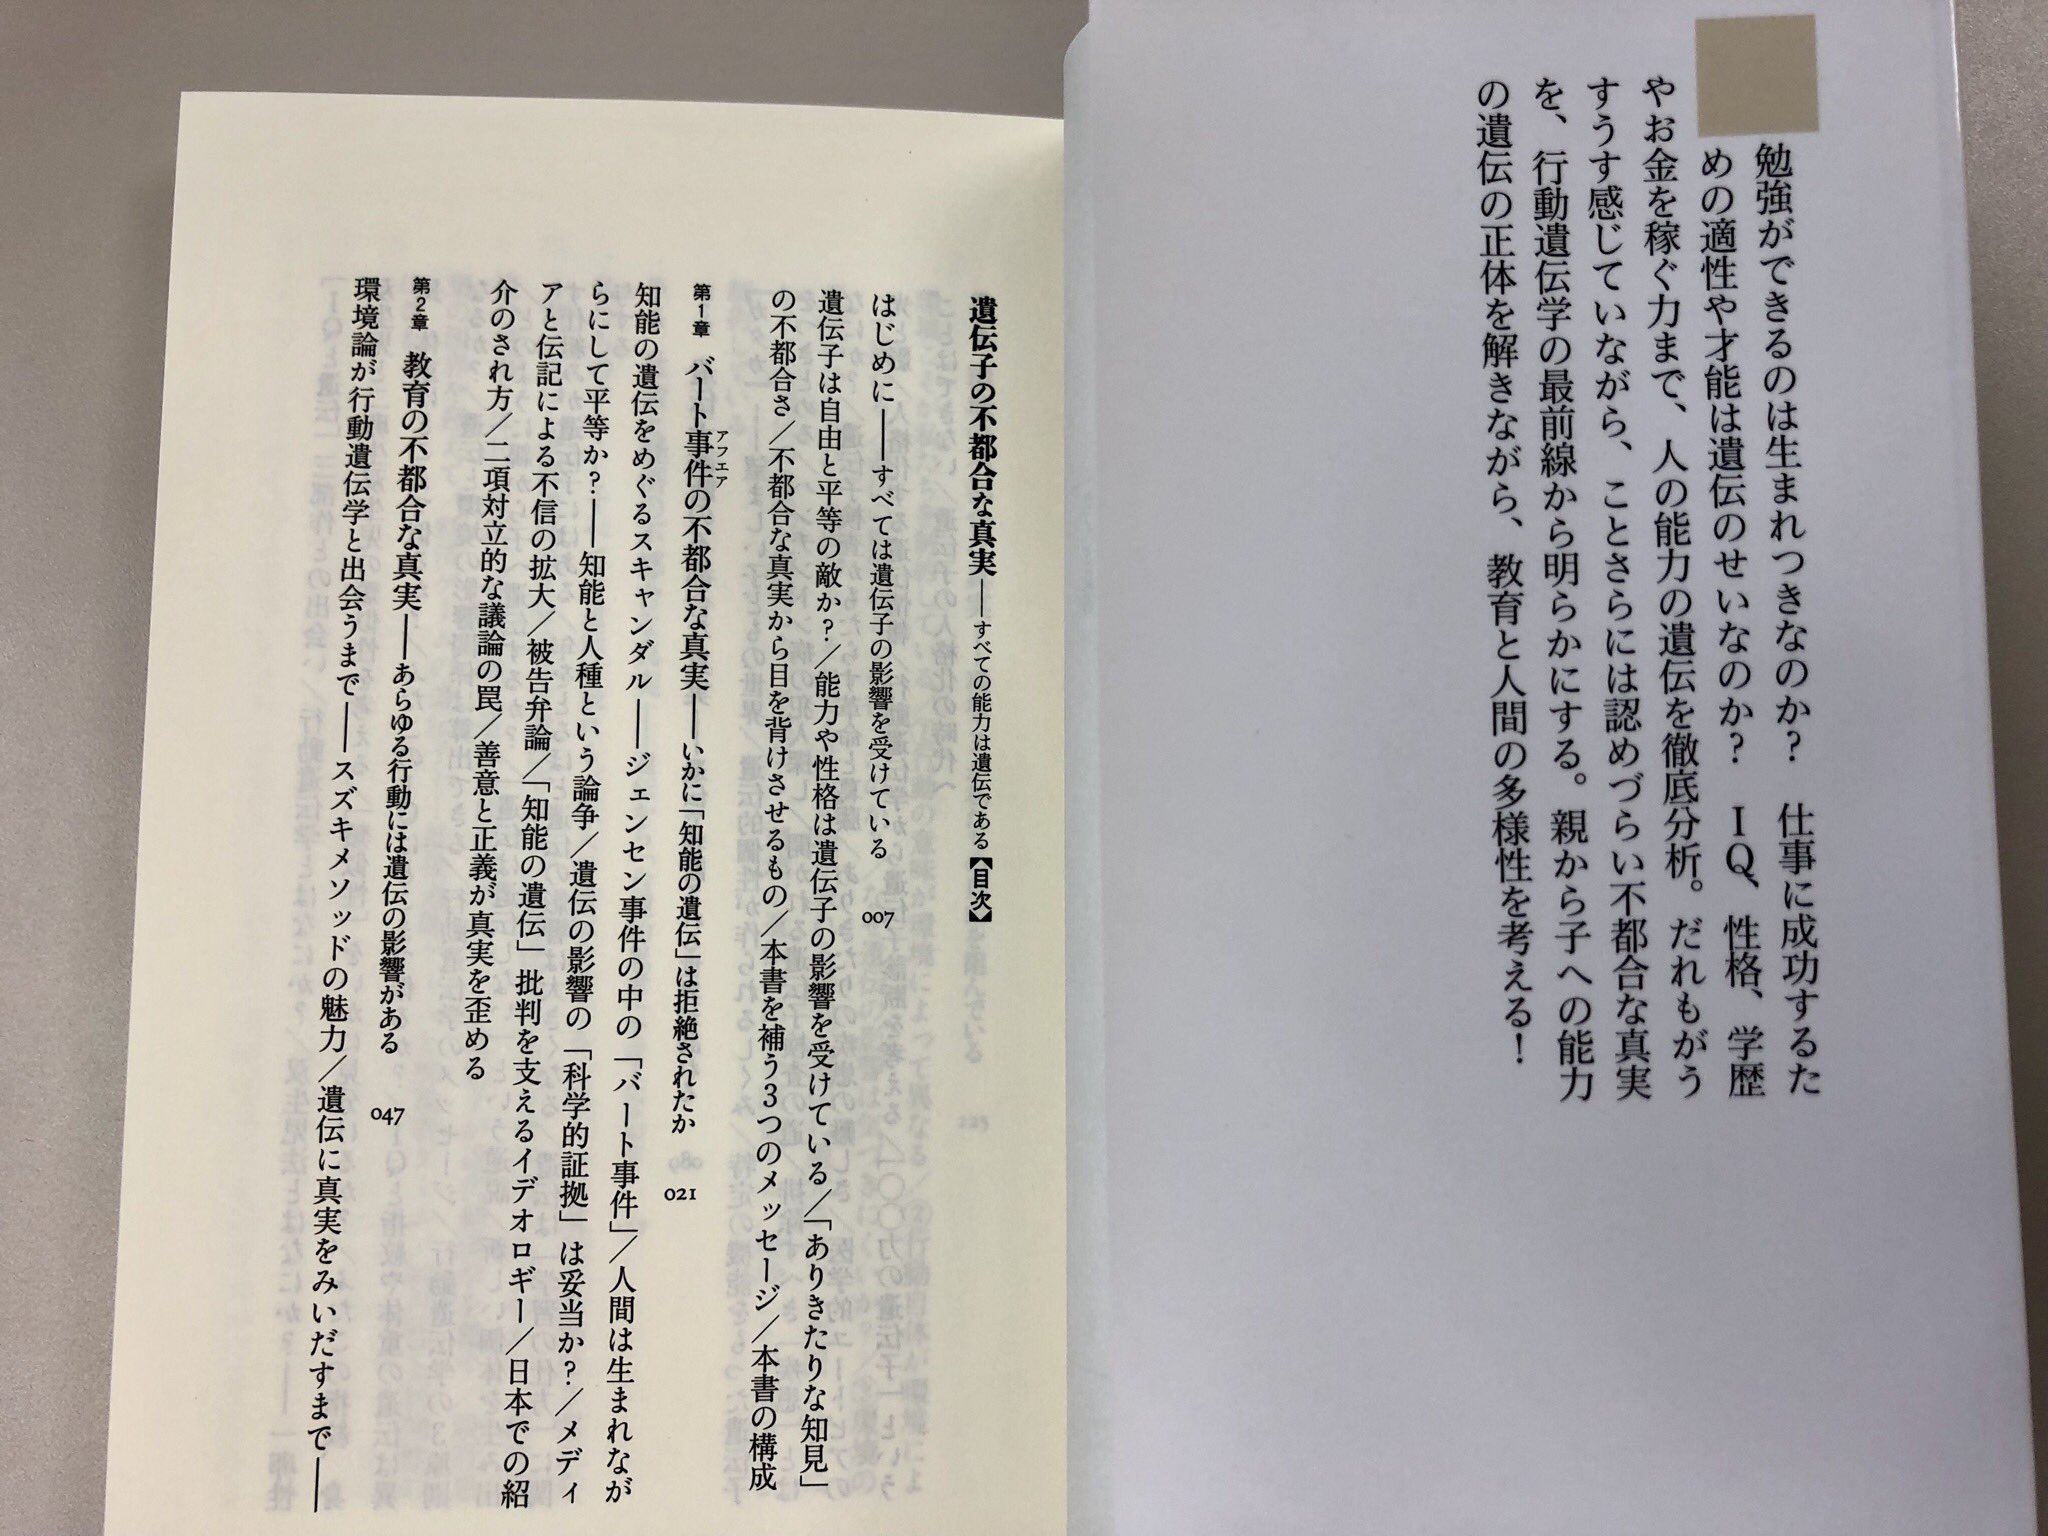 勉強ができるのは生まれつきなのか? 仕事に成功するた
めの適性や才能は遺伝のせいなのか? IQ、性格、学歴
やお金を稼ぐ力まで、人の能力の遺伝を徹底分析。だれもがう
すうす感じていながら、ことさらには認めづらい不都合な真実
を、行動遺伝学の最前線から明らかにする。親から子への能力
の遺伝の正体を解きながら、教育と人間の多様性を考える!
遺伝子の不都合な真実――すべての能力は遺伝である【目次】
はじめに――すべては遺伝子の影響を受けている 007
遺伝子は自由と平等の敵か?/能力や性格は遺伝子の影響を受けている/「ありきたりな知見」
の不都合さ/不都合な真実から目を背けさせるもの/本書を補う3つのメッセージ/本書の構成
第1章 バート事件アフエアの不都合な真実――いかに「知能の遺伝」は拒絶されたか 021
知能の遺伝をめぐるスキャンダル――ジェンセン事件の中の「バート事件」/人間は生まれなが
らにして平等か?――知能と人種という論争/遺伝の影響の「科学的証拠」は妥当か?/メディ
アと伝記による不信の拡大/被告弁論/「知能の遺伝」批判を支えるイデオロギー/日本での紹
介のされ方/二項対立的な議論の罠/善意と正義が真実を歪める
第2章 教育の不都合な真実――あらゆる行動には遺伝の影響がある 047
環境論が行動遺伝学と出会うまで――スズキメソッドの魅力/遺伝に真実をみいだすまで――